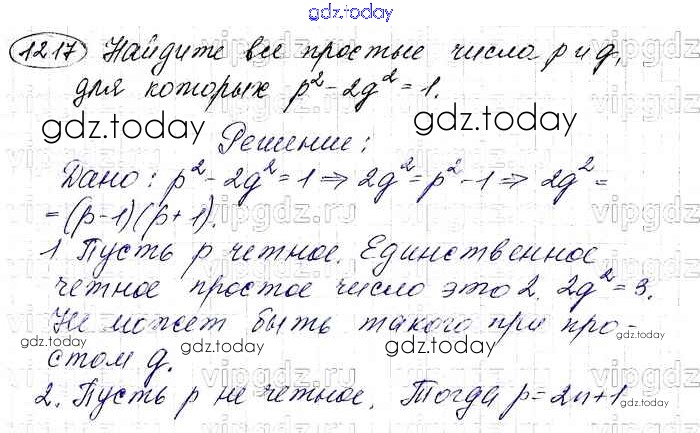 gdz.today
1217 Найдите все простые числа p и q,
для которых p² - 2q² = 1.
gdz.today gdz.today
Решение:
Дано: p² - 2q² = 1 ⇒ 2q² = p² - 1 ⇒ 2q² =
= (p-1)(p+1).
1. Пусть p четное. Единственное
четное простое число это 2. 2q² = 3.
Не может быть такого при про-
gdz.today gdz.today
стом q.
2. Пусть p не четное. Тогда p = 2n+1
gdz.today gdz.today
vipgdz.ru